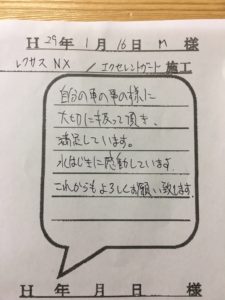 H 29年 1月 16日 M 様
レクサス NX / エクセレントガード 施工
自分の車の事の様に
大切に扱って頂き、
満足しています。
水はじきに感動しています。
これからもよろしくお願い致します。
H 年 月 日 様